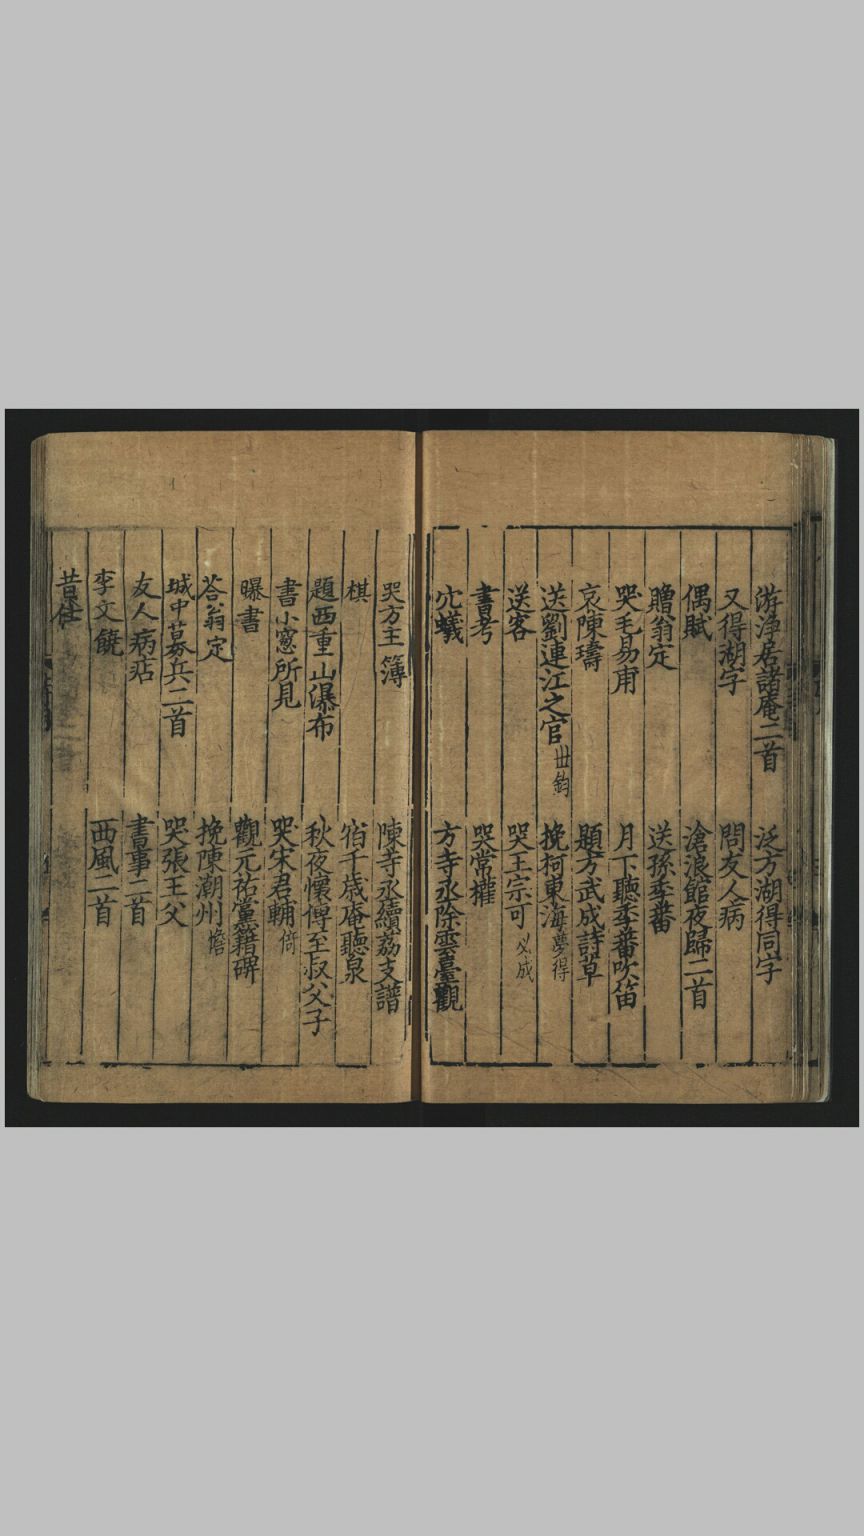 游淨居諸庵二首　泛方湖得同字
又得湖字　問友人病
偶賦　滄浪館夜歸二首
贈翁定　送孫季蕃
哭毛易甫　月下聽季蕃吹笛
哀陳璹　題方武成詩草
送劉連江之官丗鈞　挽柯東海夢得
送客　哭王宗可必成
書考　哭常權
穴蟻　方寺丞除雲臺觀
哭方主簿　陳寺丞續荔支譜
棋　宿千歲庵聽泉
題西重山瀑布　秋夜懷傅至叔父子
書小窻所見　哭宋君輔倚
曝書　觀元祐黨籍碑
荅翁定　挽陳潮州憺
城中募兵二首　哭張王父
友人病痁　書事二首
李文饒　西風二首
昔仕